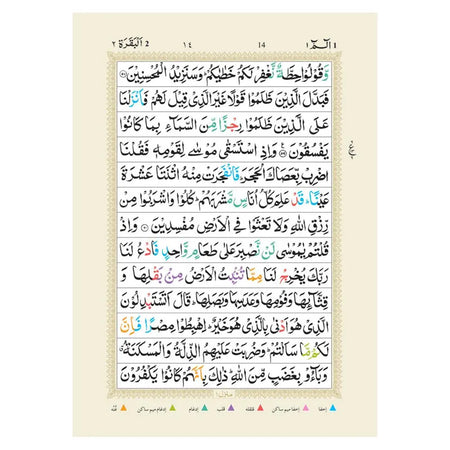 الٓمّٓ ١ 14 ١٤ 2 اَلْبَقَرَة ٢
وَّقُوْلُوْا حِطَّةٌ نَّغْفِرْ لَكُمْ خَطٰيٰكُمْ ؕ وَسَنَزِيْدُ الْمُحْسِنِيْنَ
فَبَدَّلَ الَّذِيْنَ ظَلَمُوْا قَوْلًا غَيْرَ الَّذِيْ قِيْلَ لَهُمْ فَاَنْزَلْنَا
عَلَى الَّذِيْنَ ظَلَمُوْا رِجْزًا مِّنَ السَّمَآءِ بِمَا كَانُوْا
يَفْسُقُوْنَ وَاِذِ اسْتَسْقٰى مُوْسٰى لِقَوْمِهٖ فَقُلْنَا
اضْرِبْ بِّعَصَاكَ الْحَجَرَ ؕ فَانْفَجَرَتْ مِنْهُ اثْنَتَا عَشْرَةَ
عَيْنًا ؕ قَدْ عَلِمَ كُلُّ اُنَاسٍ مَّشْرَبَهُمْ ؕ كُلُوْا وَاشْرَبُوْا مِنْ
رِّزْقِ اللّٰهِ وَلَا تَعْثَوْا فِى الْاَرْضِ مُفْسِدِيْنَ وَاِذْ
قُلْتُمْ يٰمُوْسٰى لَنْ نَّصْبِرَ عَلٰى طَعَامٍ وَّاحِدٍ فَادْعُ لَنَا
رَبَّكَ يُخْرِجْ لَنَا مِمَّا تُنْۢبِتُ الْاَرْضُ مِنْۢ بَقْلِهَا وَ
قِثَّآئِهَا وَفُوْمِهَا وَعَدَسِهَا وَبَصَلِهَا ؕ قَالَ اَتَسْتَبْدِلُوْنَ
الَّذِيْ هُوَ اَدْنٰى بِالَّذِيْ هُوَ خَيْرٌ ؕ اِهْبِطُوْا مِصْرًا فَاِنَّ
لَكُمْ مَّا سَاَلْتُمْ ؕ وَضُرِبَتْ عَلَيْهِمُ الذِّلَّةُ وَالْمَسْكَنَةُ
وَبَآءُوْ بِغَضَبٍ مِّنَ اللّٰهِ ؕ ذٰلِكَ بِاَنَّهُمْ كَانُوْا يَكْفُرُوْنَ
منزل ١
اخفا اخفا ميم ساكن قلقله قلب ادغام ادغام ميم ساكن غنه